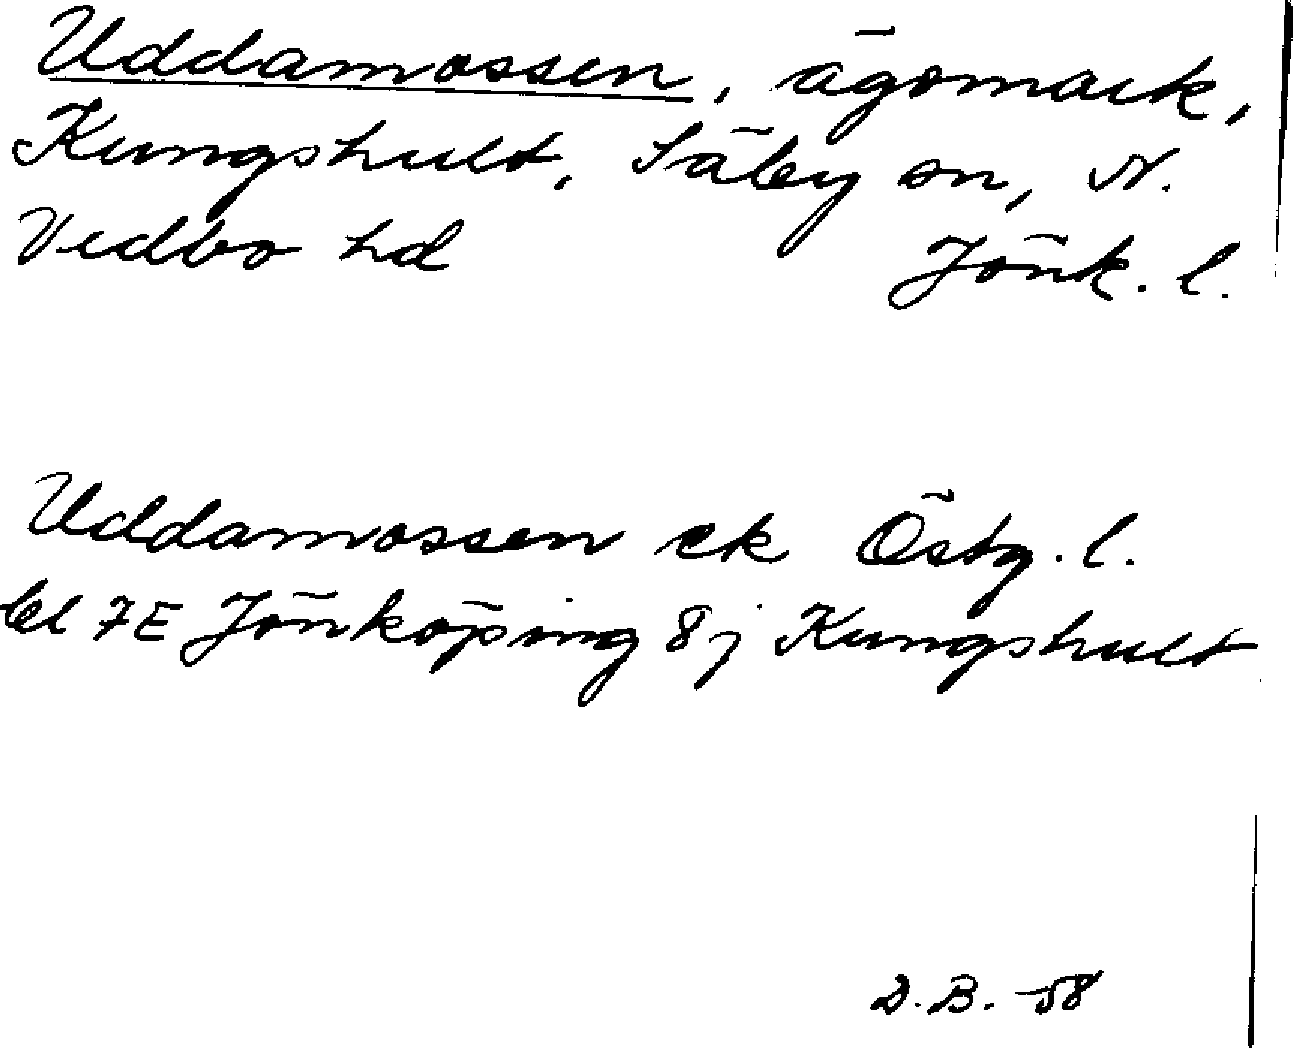 Uddamossen, ägomark,
Kungshult, Säby sn, N.
Vedbo hd Jönk. l.
Uddamossen ek Östg. l.
bl 7E Jönköping 8j Kungshult
D.B. -58